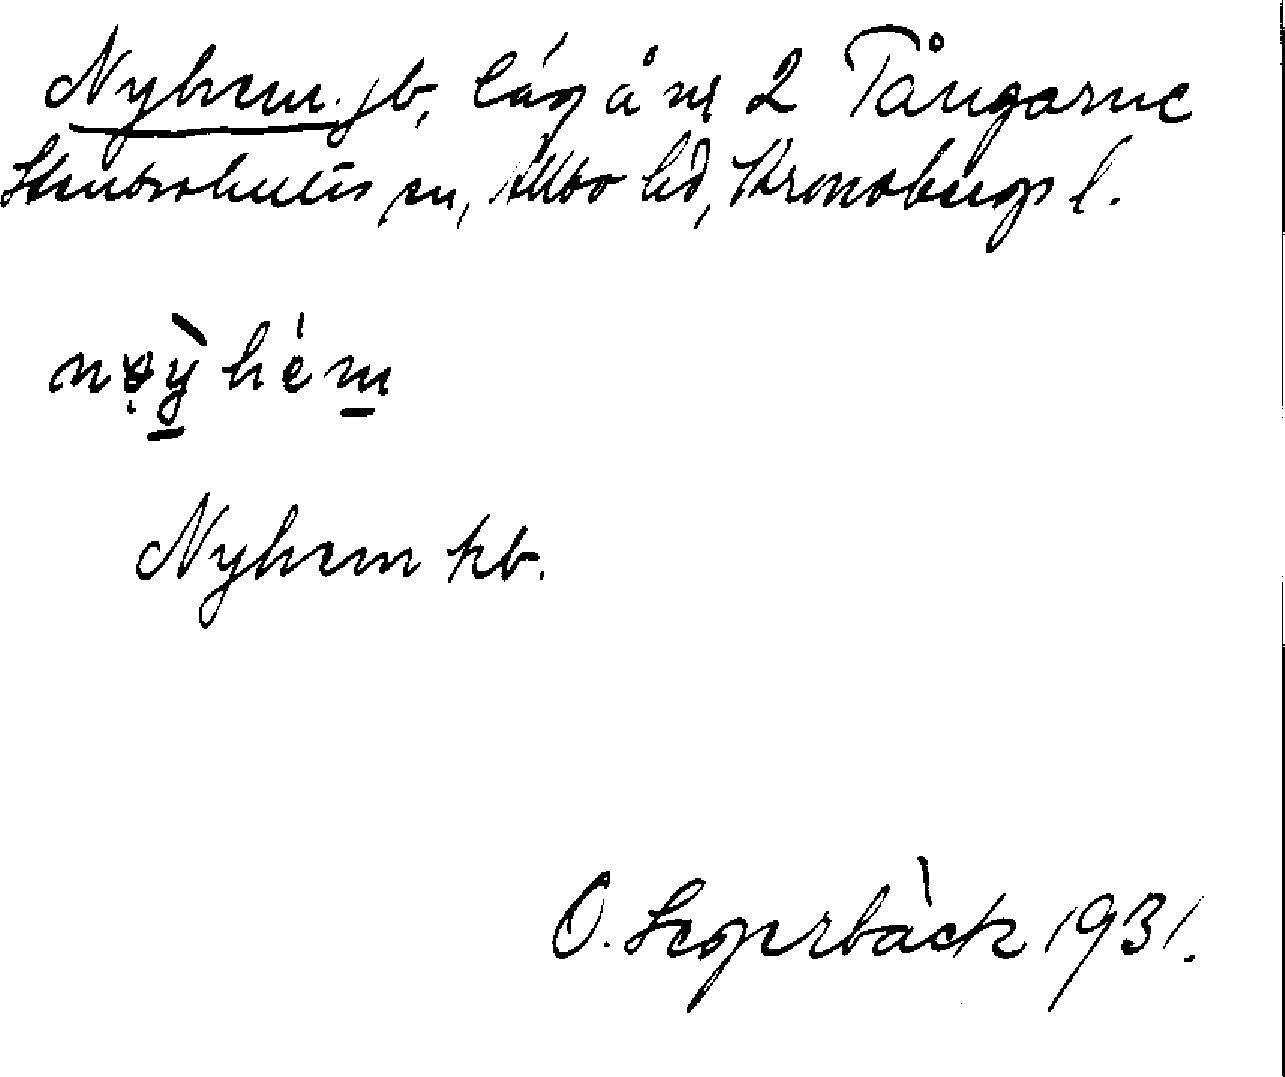 Nyhem jb, låg å nr 2 Tångarne
Stenbrohults sn, Allbo hd, Kronobergs l.
nọỳhèm
Nyhem kb.
O. Segerbäck 1931.